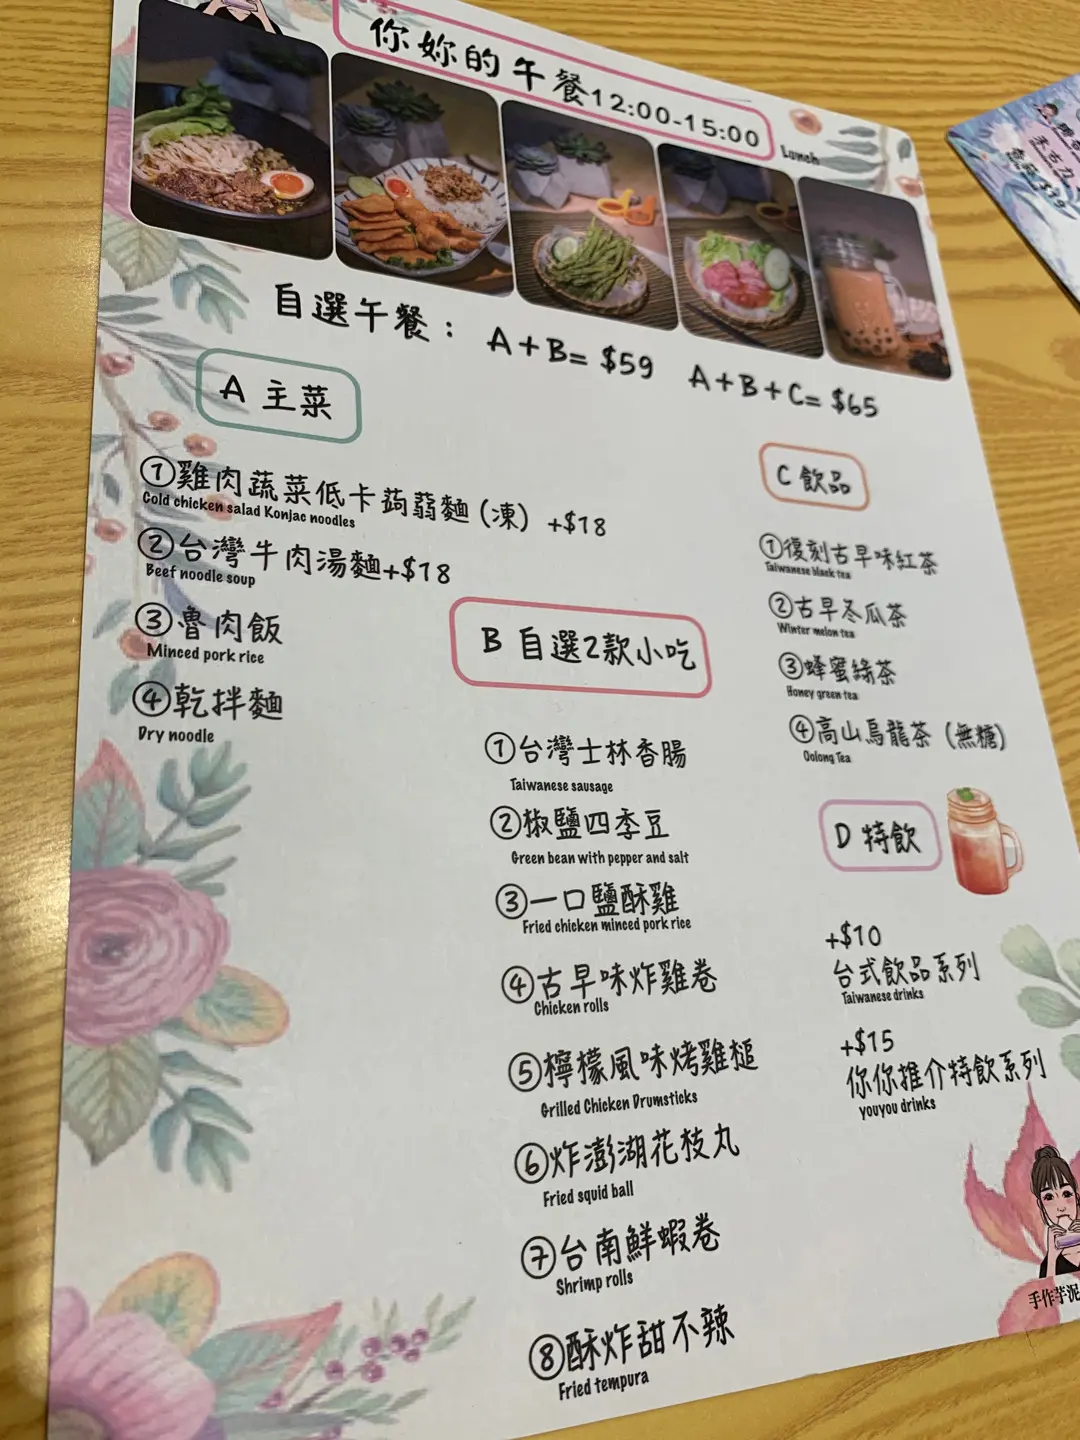 你妳的午餐12:00-15:00
Lunch
自選午餐： A+B= $59 A+B+C= $65
A 主菜
①雞肉蔬菜低卡蒟蒻麵（凍）+$18
Cold chicken salad Konjac noodles
②台灣牛肉湯麵+$18
Beef noodle soup
③魯肉飯
Minced pork rice
④乾拌麵
Dry noodle
B 自選2款小吃
①台灣士林香腸
Taiwanese sausage
②椒鹽四季豆
Green bean with pepper and salt
③一口鹽酥雞
Fried chicken minced pork rice
④古早味炸雞卷
Chicken rolls
⑤檸檬風味烤雞槌
Grilled Chicken Drumsticks
⑥炸澎湖花枝丸
Fried squid ball
⑦台南鮮蝦卷
Shrimp rolls
⑧酥炸甜不辣
Fried tempura
C 飲品
①復刻古早味紅茶
Taiwanese black tea
②古早冬瓜茶
Winter melon tea
③蜂蜜綠茶
Honey green tea
④高山烏龍茶（無糖）
Oolong Tea
D 特飲
+$10
台式飲品系列
Taiwanese drinks
+$15
你你推介特飲系列
youyou drinks
手作芋泥